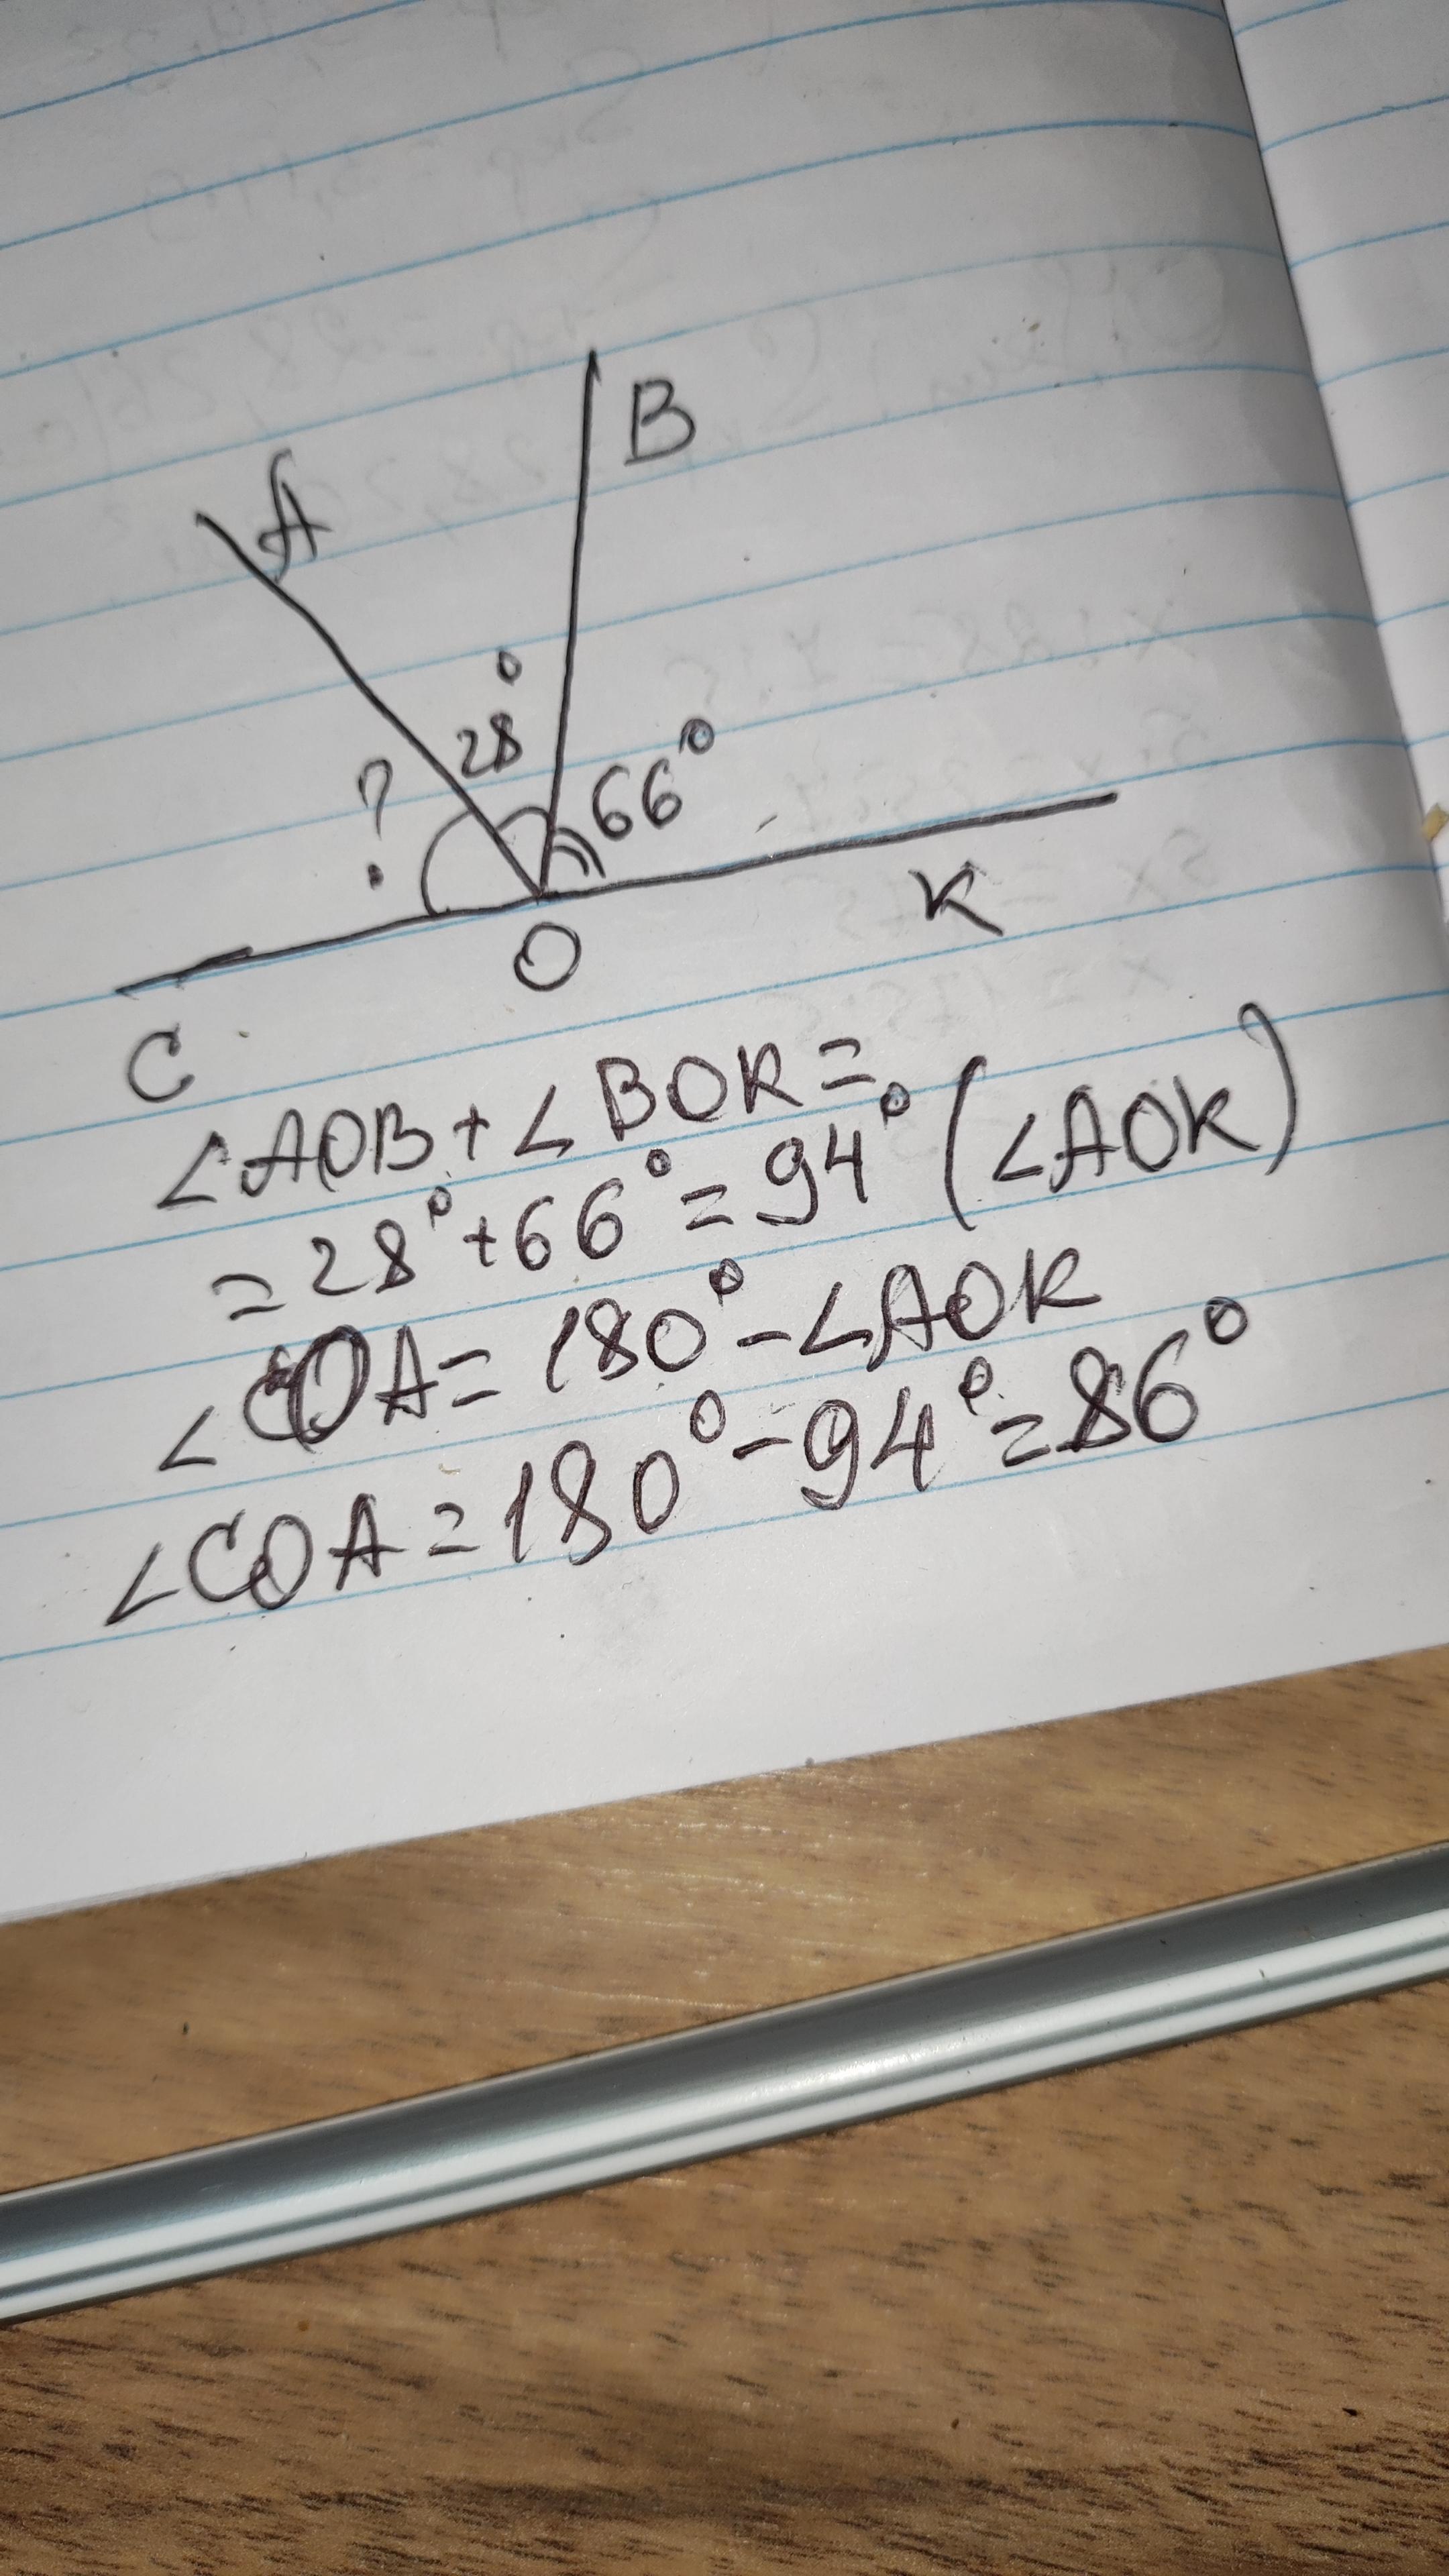 B
A
28°
66°
?
K
O
C
∠AOB+∠BOK=
=28°+66°=94° (∠AOK)
∠COA=180°-∠AOK
∠COA=180°-94°=86°